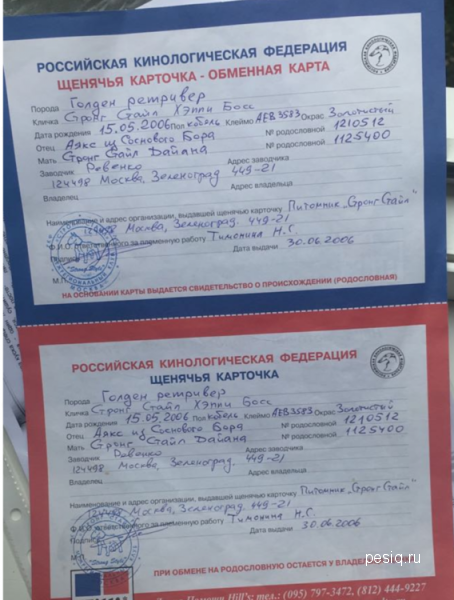 РОССИЙСКАЯ КИНОЛОГИЧЕСКАЯ ФЕДЕРАЦИЯ
ЩЕНЯЧЬЯ КАРТОЧКА - ОБМЕННАЯ КАРТА
Порода Голден ретривер
Кличка Стронг Стайл Хэппи Босс
Дата рождения 15.05.2006 Пол кобель Клеймо AEB3583 Окрас Золотистый
Отец Аякс из Соснового Бора № родословной 1210512
Мать Стронг Стайл Дайана № родословной 1125400
Заводчик Ревенко Адрес заводчика
124498 Москва, Зеленоград 449-21
Владелец Адрес владельца
Наименование и адрес организации, выдавшей щенячью карточку Питомник „Стронг Стайл"
Москва, Зеленоград. 449-21
Ф.И.О. ответственного за племенную работу Тимонина Н.С.
Подпись Дата выдачи 30.06.2006
М.П.
НА ОСНОВАНИИ КАРТЫ ВЫДАЕТСЯ СВИДЕТЕЛЬСТВО О ПРОИСХОЖДЕНИИ (РОДОСЛОВНАЯ)
РОССИЙСКАЯ КИНОЛОГИЧЕСКАЯ ФЕДЕРАЦИЯ
ЩЕНЯЧЬЯ КАРТОЧКА
Порода Голден ретривер
Кличка Стронг Стайл Хэппи Босс
Дата рождения 15.05.2006 Пол кобель Клеймо AEB3583 Окрас Золотистый
Отец Аякс из Соснового Бора № родословной 1210512
Мать Стронг Стайл Дайана № родословной 1125400
Заводчик Ревенко Адрес заводчика
124498 Москва, Зеленоград. 449-21
Владелец Адрес владельца
Наименование и адрес организации, выдавшей щенячью карточку Питомник „Стронг Стайл"
Москва, Зеленоград. 449-21
Ф.И.О. ответственного за племенную работу Тимонина Н.С.
Подпись Дата выдачи 30.06.2006
М.П.
ПРИ ОБМЕНЕ НА РОДОСЛОВНУЮ ОСТАЕТСЯ У ВЛАДЕЛЬЦА
pesiq.ru
Hill's; тел.: (095) 797-3472, (812) 444-9227